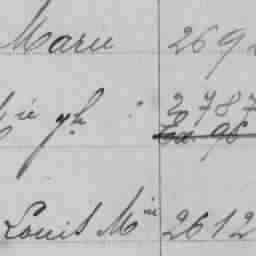 Marie 269
ie yh : 2787
Louis Mie 2612